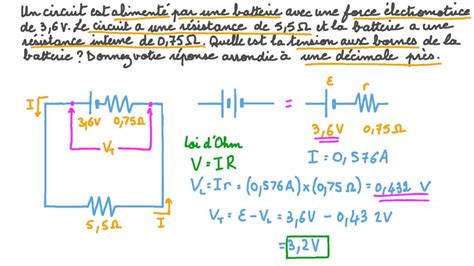 Un circuit est alimenté par une batterie avec une force électromotrice
de 3,6V. Le circuit a une résistance de 5,5Ω et la batterie a une
résistance interne de 0,75Ω. Quelle est la tension aux bornes de la
batterie ? Donnez votre réponse arrondie à une décimale près.
I
3,6V 0,75Ω
V_T
5,5Ω
I
=
ε r
3,6V 0,75Ω
Loi d'Ohm
V = IR
I = 0,576A
V_L = Ir = (0,576A) × (0,75Ω) = 0,432 V
V_T = ε - V_L = 3,6V - 0,43 2V
= 3,2V